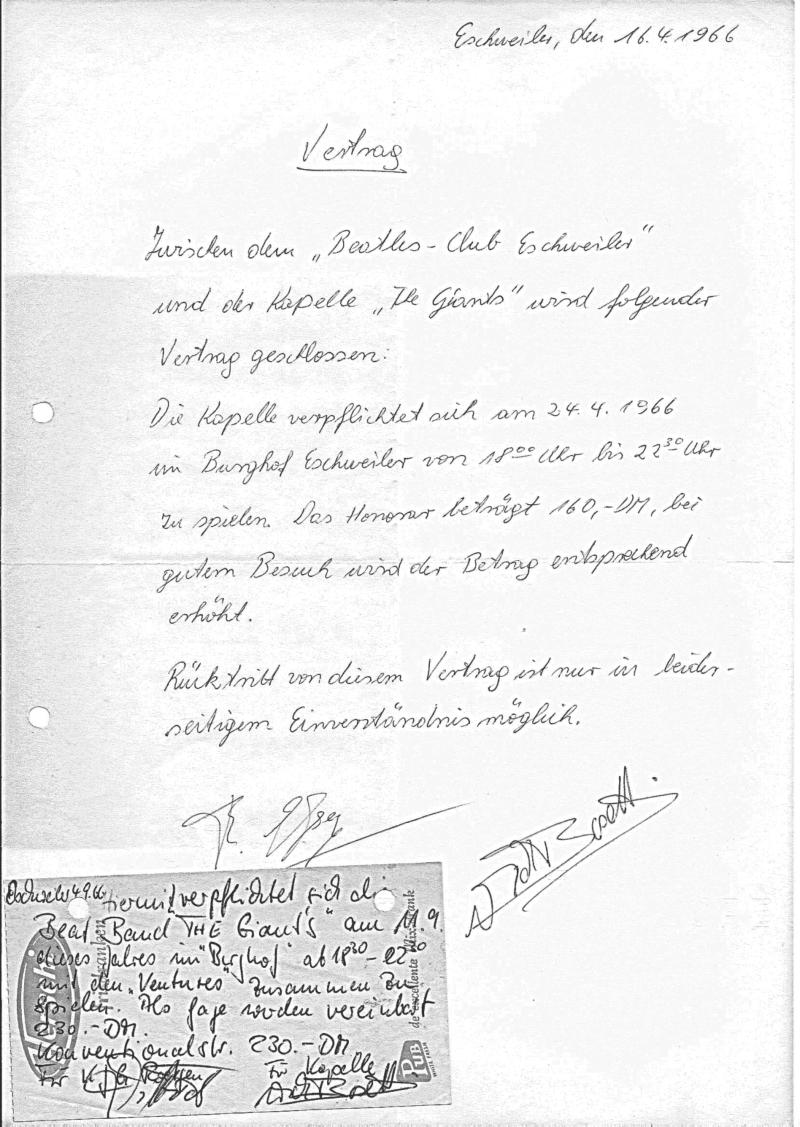 Eschweiler, den 16.4.1966
Vertrag
Zwischen dem „Beatles-Club Eschweiler"
und der Kapelle „The Giants" wird folgender
Vertrag geschlossen:
Die Kapelle verpflichtet sich am 24.4.1966
im Burghof Eschweiler von 18⁰⁰ Uhr bis 22³⁰ Uhr
zu spielen. Das Honorar beträgt 160,-DM, bei
gutem Besuch wird der Betrag entsprechend
erhöht.
Rücktritt von diesem Vertrag ist nur in beider-
seitigem Einverständnis möglich.
4.9.66 Hiermit verpflichtet sich die
Beat Band "THE Giants" am 11.9.
dieses Jahres im "Burghof" ab 18³⁰-22³⁰
mit den „Ventures" zusammen zu
spielen. Als Gage worden vereinbart
230.-DM.
Konventionalstr. 230.-DM
Für Für Kapelle
de excellente
PUB